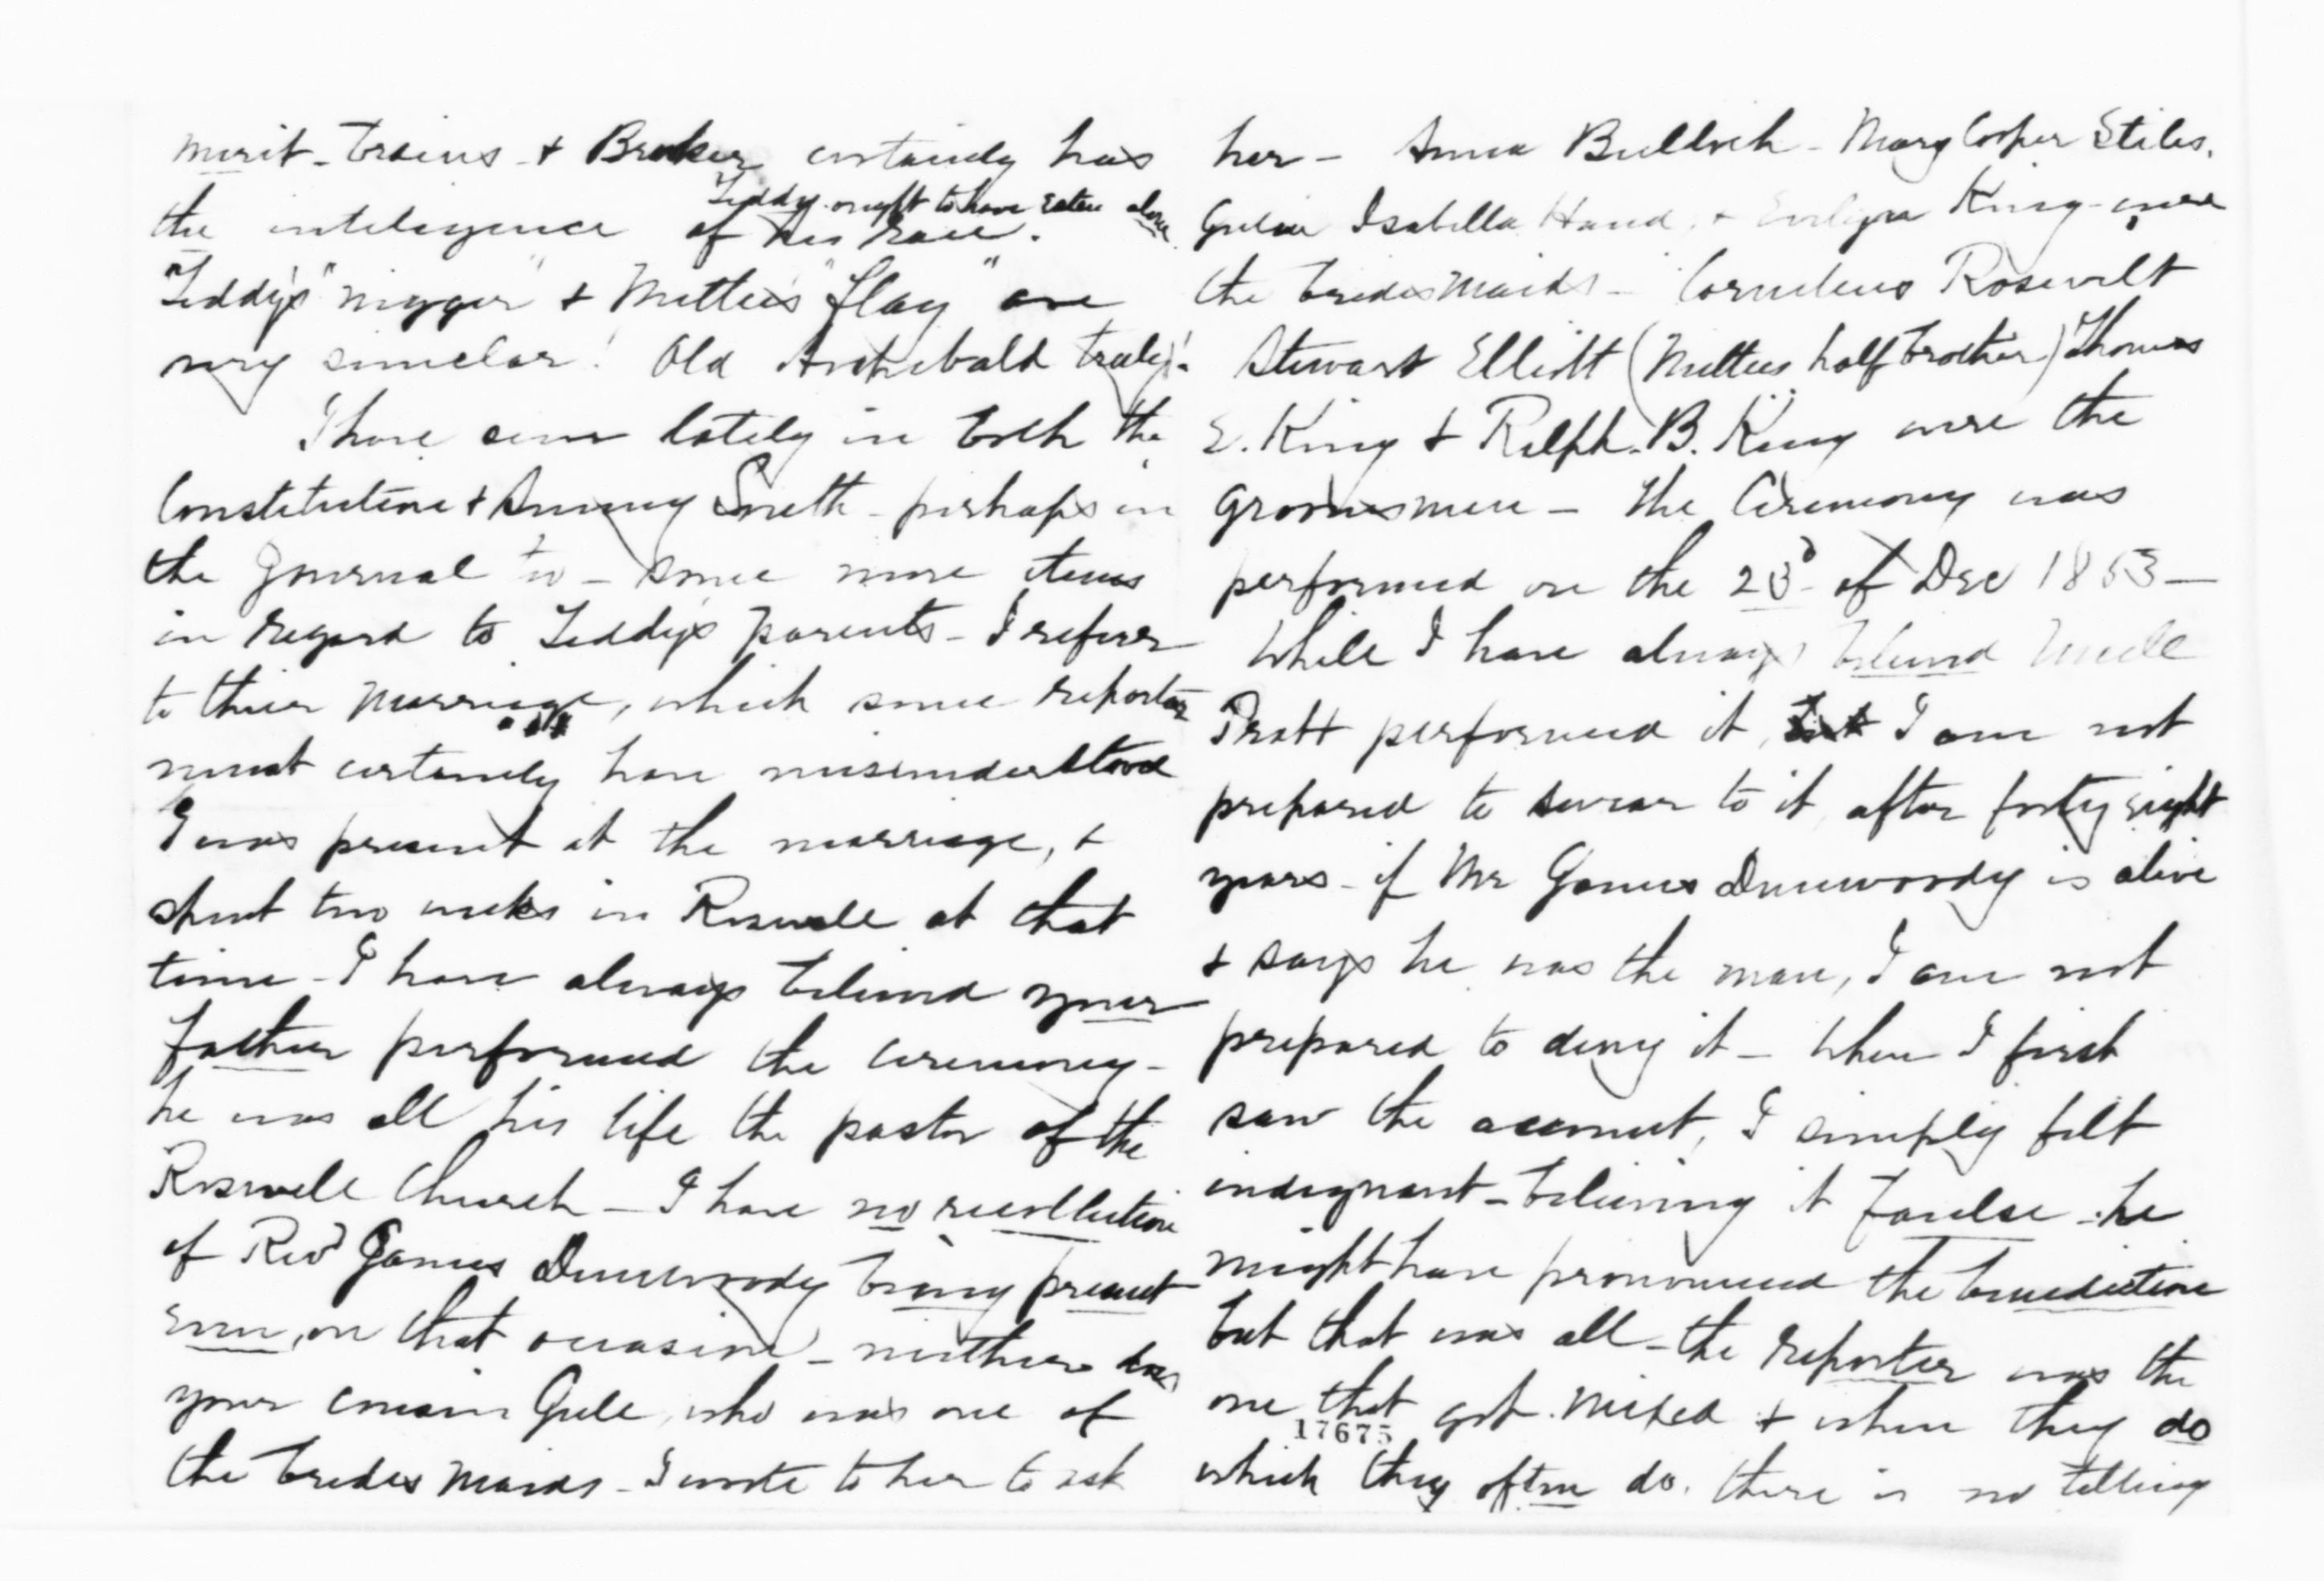 merit - brains - & Brooker certainly has
Teddy ought to have eaten alone
the inteligence of his race.
"Teddy's" nigger" & Mittie's "flag" are
very similar! Old Archibald truly!
I have seen lately in both the
Constitution & Sunny South - perhaps in
the Journal to - some more items
in regard to Teddy's parents - I referr
to their marriage, which some reporter
must certainly have misunderstood
I was present at the marriage, &
spent two weeks in Roswell at that
time - I have always believed your
father performed the ceremony -
he was all his life the pastor of the
Roswell Church - I have no recollection
of Revd James Dunwoody being present
even, on that occasion - neither does
your cousin Gule, who was one of
the brides maids - I wrote to her to ask
her - Anna Bulloch - Mary Cooper Stiles.
Isabella Hand, & Evelyn King - were
the bridesmaids - Cornelius Rosevelt
Stewart Elliott (Mitties half brother) Thomas
E. King & Ralph. B. King were the
groomsmen - The Ceremony was
performed on the 23d of Dec 1853 -
While I have always believed Uncle
Pratt performed it, I am not
prepared to swear to it after forty eight
years - if Mr James Dunwoody is alive
& says he was the man, I am not
prepared to deny it - When I first
saw the account, I simply felt
indignant - believing it faulse - he
might have pronounced the benediction
but that was all - the reporter was the
one that got mixed & when they do
17675
which they often do. there is no telling